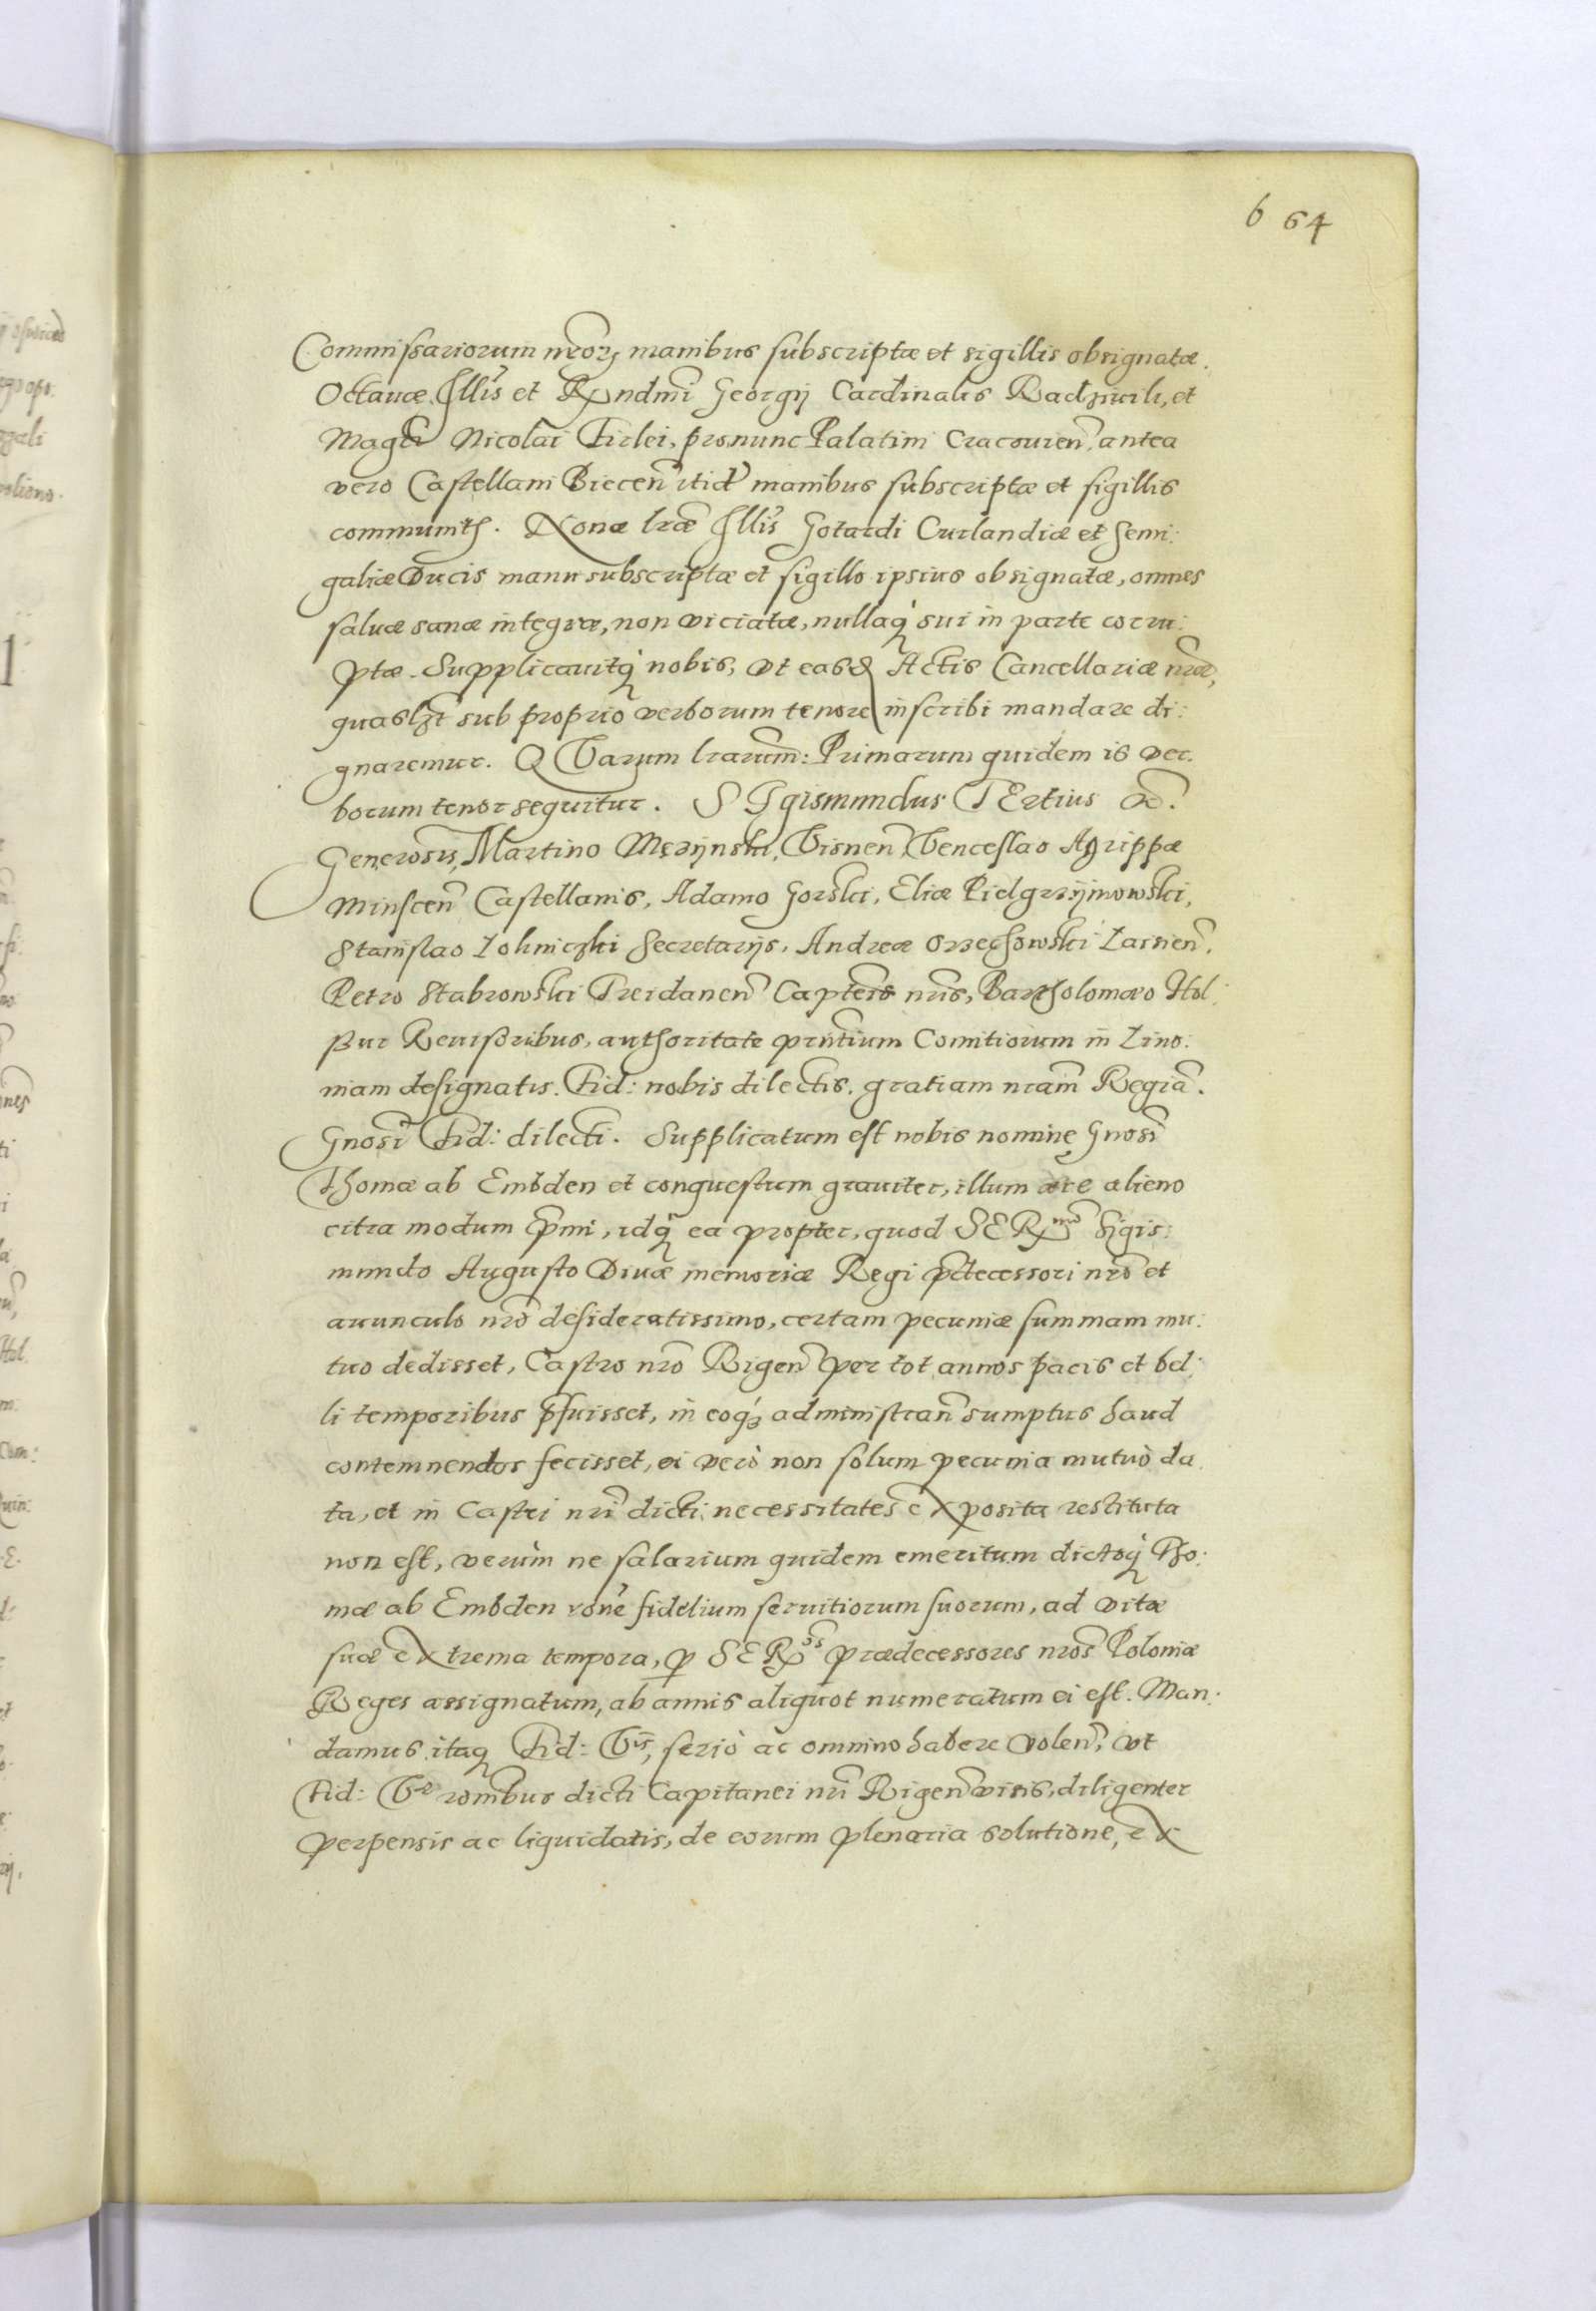 6 64
Commissariorum nrorz manibus subscriptæ et sigillis obsignatæ.
Octauæ Illis et Rxndmi Georgij Cardinalis Radziwili, et
Magci Nicolai Firlei, pro nunc Palatini Cracouien, antea
vero Castellani Biecen itid manibus subscriptæ et sigillis
communitæ. Nonæ lræ Illis Gotardi Curlandiæ et Semi:
galiæ Ducis manu subscriptæ et sigillo ipsius obsignatæ, omnes
saluæ sanæ integræ, non viciatæ, nullaq sui in parte corru:
ptæ. Supplicauitq nobis, vt eas Actis Cancellariæ nræ,
quaslzt sub proprio verborum tenore inscribi mandare di:
gnaremur. QVarum lrarum: Primarum quidem is ver.
borum tenor sequitur. SIgismundus TErtius &c.
Generosis, Martino Visnen, Venceslao Agrippæ
Minscen Castellanis, Adamo Gorski, Eliæ Pielgrzijmowski,
Stanislao Secretarijs, Andreæ Orzechowski
Petro Stabrowski Treidanen Capteis nris, Bartholomæo Hol:
szur Reuisoribus, authoritate pntium Comitiorum in Liuo:
niam designatis. Fid: nobis dilectis. gratiam nram Regia.
Gnosi Fid: dilecti. Supplicatum est nobis nomine Gnosi
Thomæ ab Embden et conquestum grauiter, illum ære alieno
citra modum pmi, idq ea propter, quod SERxmo Sigis:
mundo Augusto Diuæ memoriæ Regi pdecessori nro et
auunculo nro desideratissimo, certam pecuniæ summam mu:
tuo dedisset, Castro nro Rigen per tot annos pacis et bel:
li temporibus pfuisset, in eoq administran sumptus haud
contemnendos fecisset, ei verò non solum pecunia mutuò da
ta, et in Castri nri dicti necessitates exposita restituta
non est, verùm ne salarium quidem emeritum dictoq Tho:
mæ ab Embden rone fidelium seruitiorum suorum, ad vitæ
suæ extrema tempora, p SERxos prædecessores nros Poloniæ
Reges assignatum, ab annis aliquot numeratum ei est. Man:
damus itaq Fid: Vris, seriò ac omnino habere volen, vt
Fid: Vræ ronibus dicti Capitanei nri Rigen visis, diligenter
perpensis ac liquidatis, de eorum plenaria solutione, ex